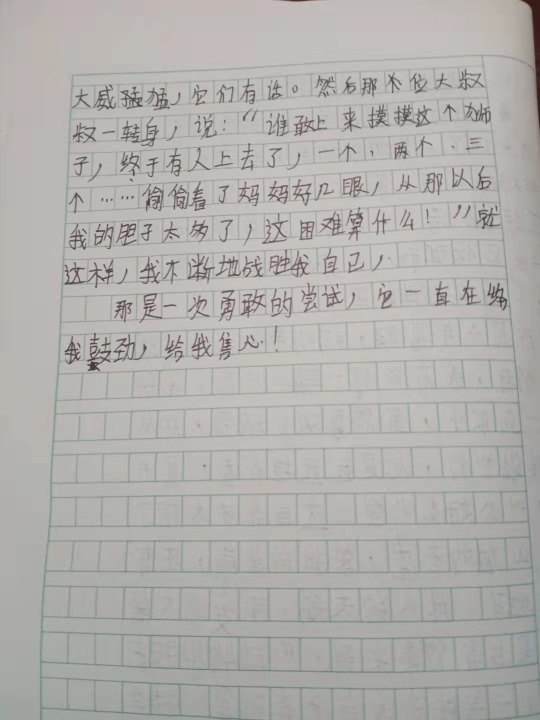 大威猛猛,它们有话。然后那个位大叔
叔一转身,说:“谁敢上来摸摸这个狮
子,终于有人上去了,一个、两个、三
个……偷偷看了妈妈好几眼,从那以后
我的胆子太多了,这困难算什么!”就
这样,我不断地战胜我自己,
那是一次勇敢的尝试,它一直在给
我鼓劲,给我售心!